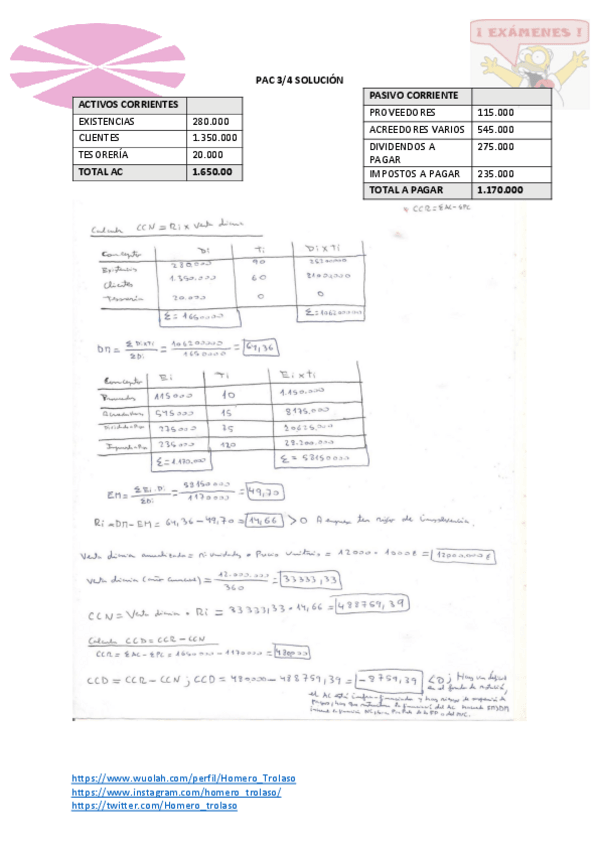 ¡ EXÁMENES !
PAC 3/4 SOLUCIÓN
ACTIVOS CORRIENTES
EXISTENCIAS 280.000
CLIENTES 1.350.000
TESORERÍA 20.000
TOTAL AC 1.650.00
PASIVO CORRIENTE
PROVEEDORES 115.000
ACREEDORES VARIOS 545.000
DIVIDENDOS A PAGAR 275.000
IMPUESTOS A PAGAR 235.000
TOTAL A PAGAR 1.170.000
* CCR = ΣAC - ΣPC
Calcula CCN = Ri x Venta diaria
Concepto Di Ti Di x Ti
Existencias 280.000 90 25200000
Clientes 1.350.000 60 81000000
Tesorería 20.000 0 0
Σ = 1650000 Σ = 106200000
DM = ΣDixTi / ΣDi = 106200000 / 1650000 = 64,36
Concepto Ei Ti Ei x Ti
115000 10 1.150.000
545000 15 8175.000
275000 75 20625.000
235000 120 28.200.000
Σ = 1.170.000 Σ = 58150000
EM = ΣEi.Di / ΣEi = 58150000 / 1170000 = 49,70
Ri = DM - EM = 64,36 - 49,70 = 14,66 > 0 A riesgo de insolvencia.
Venta diaria = unidades x Precio unitario = 12000 · 1000€ = 12000.000€
Venta diaria (año comercial) = 12.000.000 / 360 = 33333,33
CCN = Venta diaria · Ri = 33333,33 · 14,66 = 488759,39
Calcula CCD = CCR - CCN
CCR = ΣAC - ΣPC = 1650000 - 1170000 = 480000
CCD = CCR - CCN ; CCD = 480000 - 488759,39 = -8759,39 <0 ; Hay un déficit
en el fondo de rotación,
el AC está infra-financiado y hay riesgo de suspensión de
https://www.wuolah.com/perfil/Homero_Trolaso
https://www.instagram.com/homero_trolaso/
https://twitter.com/Homero_trolaso